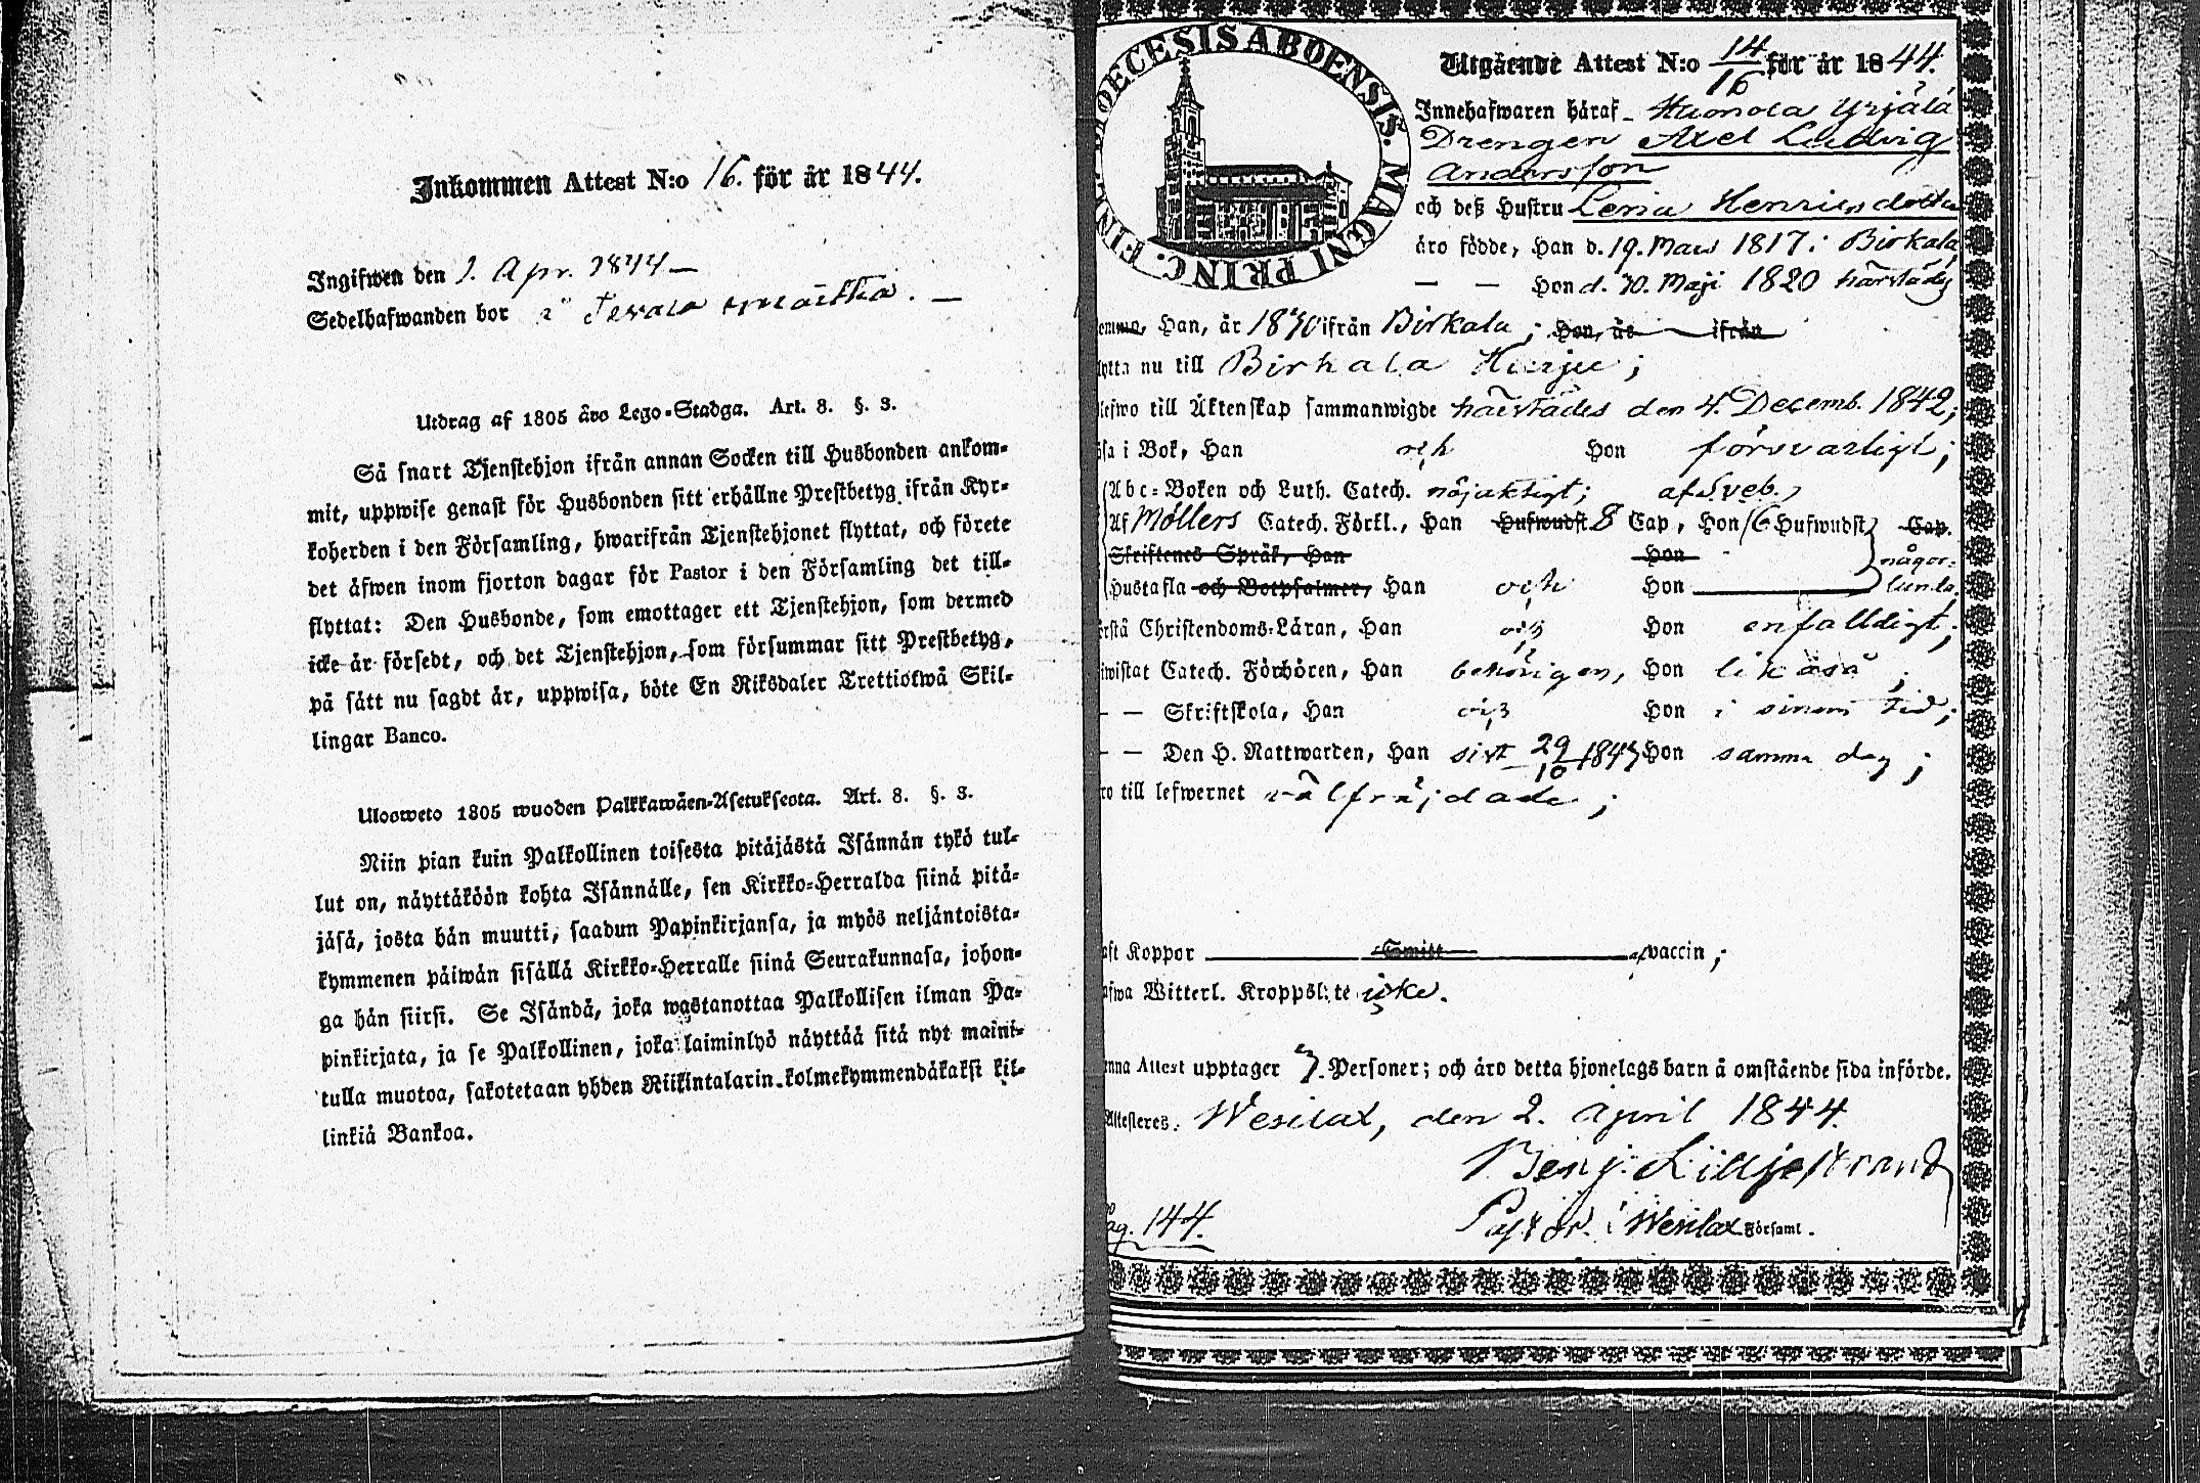 Inkommen Attest N:o 16. för år 1844.
Ingifwen den 1. Apr. 1844 —
Sedelhafwanden bor i
Utdrag af 1805 års Lego-Stadga. Art. 8. §. 3.
Så snart Tjenstehjon ifrån annan Socken till Husbonden ankom-
mit, uppwise genast för Husbonden sitt erhållne Prestbetyg ifrån Kyr-
koherden i den Församling, hwarifrån Tjenstehjonet flyttat, och förete
det äfwen inom fjorton dagar för Pastor i den Församling det till-
flyttat: Den Husbonde, som emottager ett Tjenstehjon, som dermed
icke är försedt, och det Tjenstehjon, som försummar sitt Prestbetyg,
på sätt nu sagdt är, uppwisa, böte En Riksdaler Trettiotwå Skil-
lingar Banco.
Ulosweto 1805 wuoden Palkkawäen-Asetuksesta. Art. 8. §. 3.
Niin pian kuin Palkollinen toisesta pitäjästä Isännän tykö tul-
lut on, näyttäköön kohta Isännälle, sen Kirkko-Herralda siinä pitä-
jäsä, josta hän muutti, saadun Papinkirjansa, ja myös neljäntoista-
kymmenen päiwän sisällä Kirkko-Herralle siinä Seurakunnasa, johon-
ga hän siirsi. Se Isändä, joka wastanottaa Palkollisen ilman Pa-
pinkirjata, ja se Palkollinen, joka laiminlyö näyttää sitä nyt maini-
tulla muotoa, sakotetaan yhden Riikintalarin kolmekymmendäkaksi kil-
linkiä Bankoa.
DIOECESIS ABOENSIS. MAGNI PRINC. FINL.
Utgående Attest N:o 14/16 för år 1844.
Innehafwaren häraf - Yrjälä
Drengen Axel Ludvig
Andersson
och deß Hustru Lena Henricsdotter
äro födde, Han d. 19. Mars 1817 i Birkala,
— — Hon d. 30. Maji 1820 härstädes
Han, år 1830 ifrån Birkala; Hon, år ifrån
nu till Birkala Harju;
till Äktenskap sammanwigde härstädes den 4. Decemb. 1842;
i Bok, Han och Hon försvarligt;
Abc-Boken och Luth. Catech. nöjaktigt; af Sveb.,
Af Möllers Catech. Förkl., Han Hufwudst. 8 Cap, Hon 6 Hufwudst. Cap.
Skriftenes Språk, Han Hon någor-
Hustafla och Botpsalmer, Han och Hon lunda.
Christendoms-Läran, Han och Hon enfalldigt;
Catech. Förhören, Han behörigen, Hon likaså;
— — Skriftskola, Han och Hon i sinom tid;
— — Den H. Nattwarden, Han sist 29/10 1843 Hon samma dag;
till lefwernet välfräjdade;
Koppor Smitt af vaccin;
Witterl. Kroppslyte icke.
Attest upptager 3. Personer; och äro detta hjonelags barn å omstående sida införde.
Attesteres. Wesilax, den 2. April 1844.
Benj: Lilljestrand
Pag. 144. Pastor i Wesilax Församl.